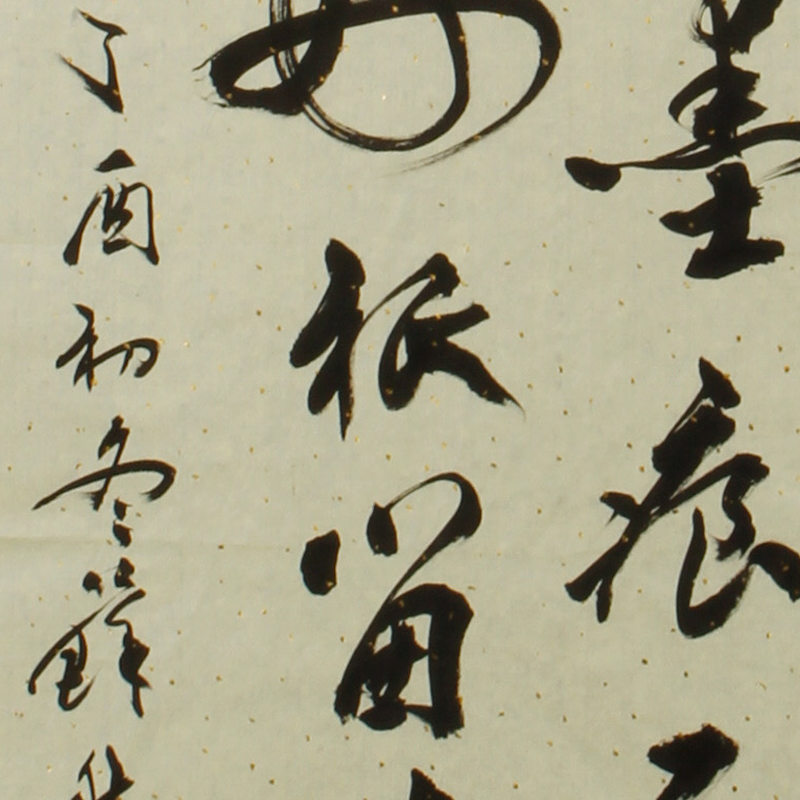 墨痕
好祇留
丁酉初冬薛